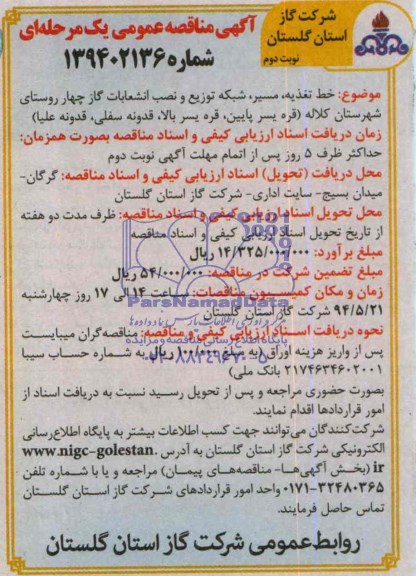 شرکت گاز
استان گلستان
نوبت دوم
آگهی مناقصه عمومی یک مرحله‌ای
شماره ۱۳۹۴۰۲۱۳۶
موضوع: خط تغذیه، مسیر، شبکه توزیع و نصب انشعابات گاز چهار روستای
شهرستان کلاله (قره یسر پایین، قره یسر بالا، قدونه سفلی، قدونه علیا)
زمان دریافت اسناد ارزیابی کیفی و اسناد مناقصه بصورت همزمان:
حداکثر ظرف ۵ روز پس از اتمام مهلت آگهی نوبت دوم
محل دریافت (تحویل) اسناد ارزیابی کیفی و اسناد مناقصه: گرگان-
میدان بسیج- سایت اداری- شرکت گاز استان گلستان
محل تحویل اسناد ارزیابی کیفی و اسناد مناقصه: ظرف مدت دو هفته
از تاریخ تحویل اسناد ارزیابی کیفی و اسناد مناقصه
مبلغ برآورد: ۱۴/۳۲۵/۰۰۰/۰۰۰ ریال
مبلغ تضمین شرکت در مناقصه: ۵۴۰/۰۰۰/۰۰۰ ریال
زمان و مکان کمیسیون مناقصات: ساعت ۱۴ الی ۱۷ روز چهارشنبه
۹۴/۵/۲۱ شرکت گاز استان گلستان
ParsNamadData
نحوه دریافت اسناد ارزیابی کیفی و مناقصه: مناقصه‌گران میبایست
پایگاه اطلاع رسانی مناقصه و مزایده
پس از واریز هزینه اوراق (به مبلغ ۱۰۰/۰۰۰ ریال به شماره حساب سیبا
۲۱۷۴۶۳۴۶۰۲۰۰۱ بانک ملی)
بصورت حضوری مراجعه و پس از تحویل رسید نسبت به دریافت اسناد از
امور قراردادها اقدام نمایند.
شرکت‌کنندگان می‌توانند جهت کسب اطلاعات بیشتر به پایگاه اطلاع‌رسانی
الکترونیکی شرکت گاز استان گلستان به آدرس www.nigc-golestan.
ir (بخش آگهی‌ها- مناقصه‌های پیمان) مراجعه و یا با شماره تلفن
۰۱۷۱-۳۲۴۸۰۳۶۵ واحد امور قراردادهای شرکت گاز استان گلستان
تماس حاصل فرمایند.
روابط عمومی شرکت گاز استان گلستان